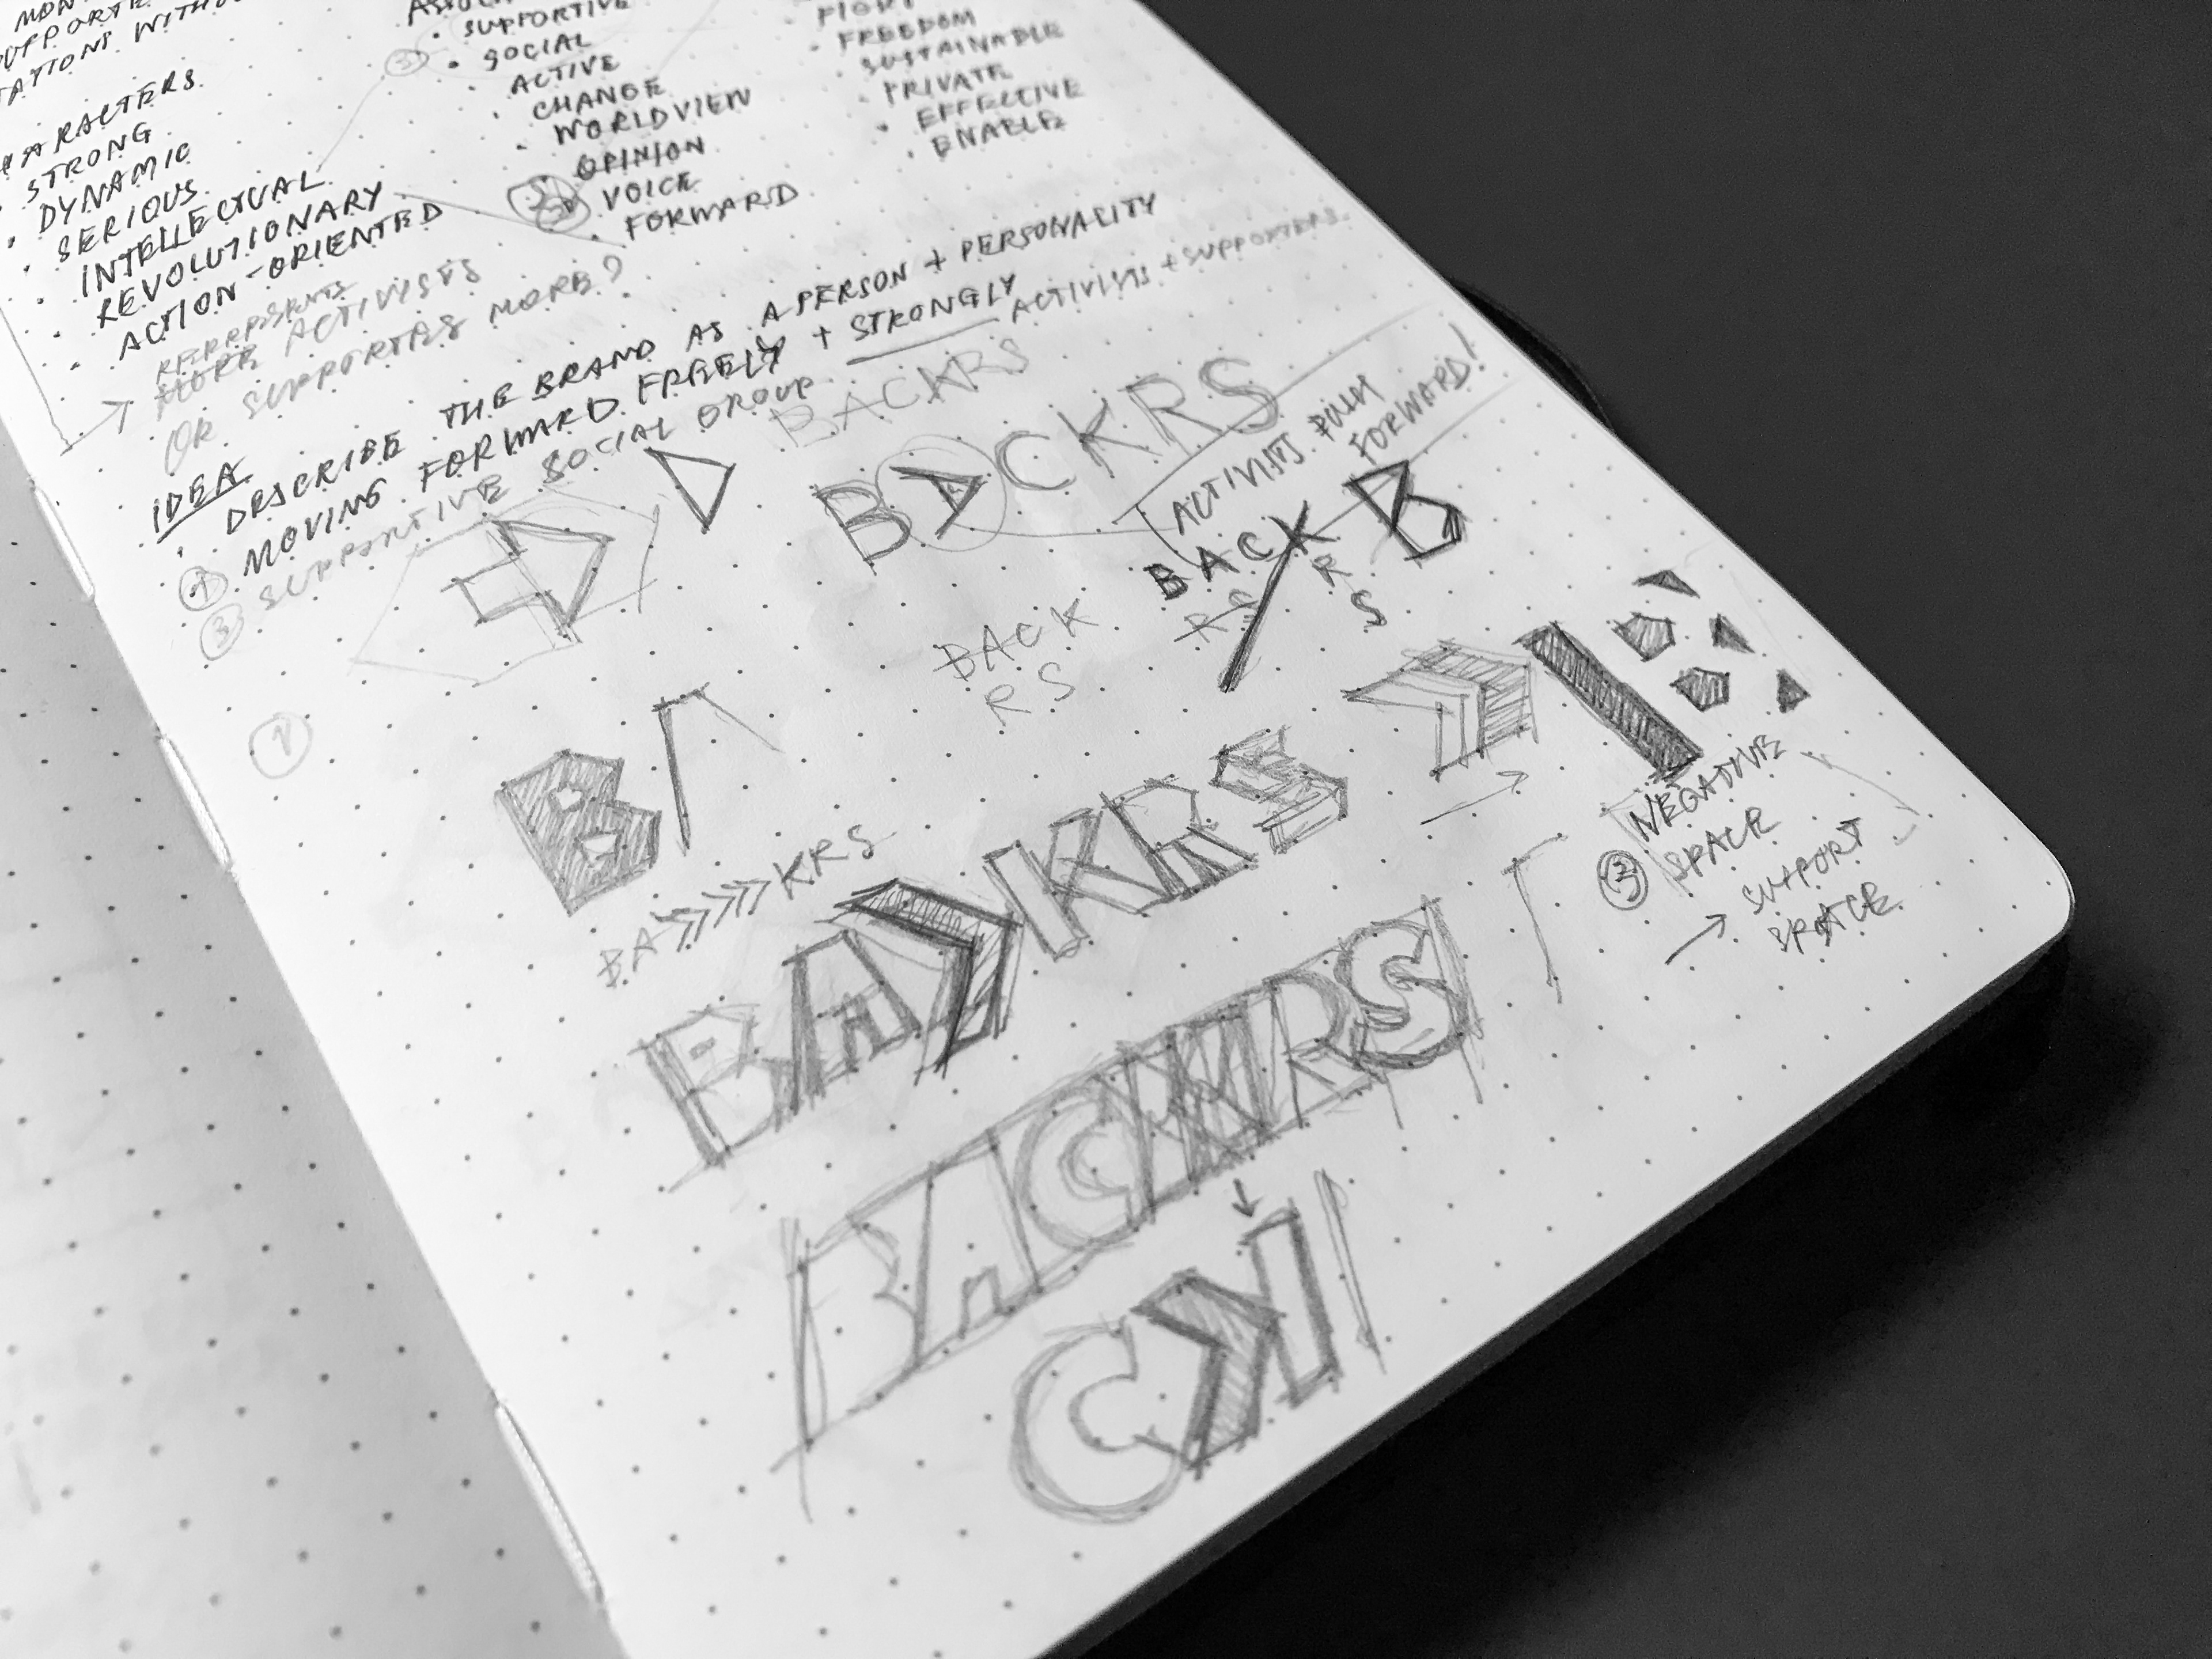 CHARACTERS
STRONG
DYNAMIC
SERIOUS
INTELLECTUAL
REVOLUTIONARY
ACTION-ORIENTED
REPRESENTS
MORE ACTIVISTS
OR SUPPORTERS MORE?
SUPPORTIVE
SOCIAL
ACTIVE
CHANGE
WORLDVIEW
OPINION
VOICE
FORWARD
FREEDOM
SUSTAINABLE
PRIVATE
EFFECTIVE
ENABLE
IDEA
DESCRIBE THE BRAND AS A PERSON + PERSONALITY
1 MOVING FORWARD FREELY + STRONGLY ACTIVISTS + SUPPORTERS
3 SUPPORTIVE SOCIAL GROUP
BACKRS
BACKRS
ACTIVISTS PUSH
FORWARD!
BACK
RS
RS
B
BACK
RS
1
B
BA>>>>>KRS
BA>KRS
NEGATIVE
SPACE
→ SUPPORT
SPACE
BACKRS
CK